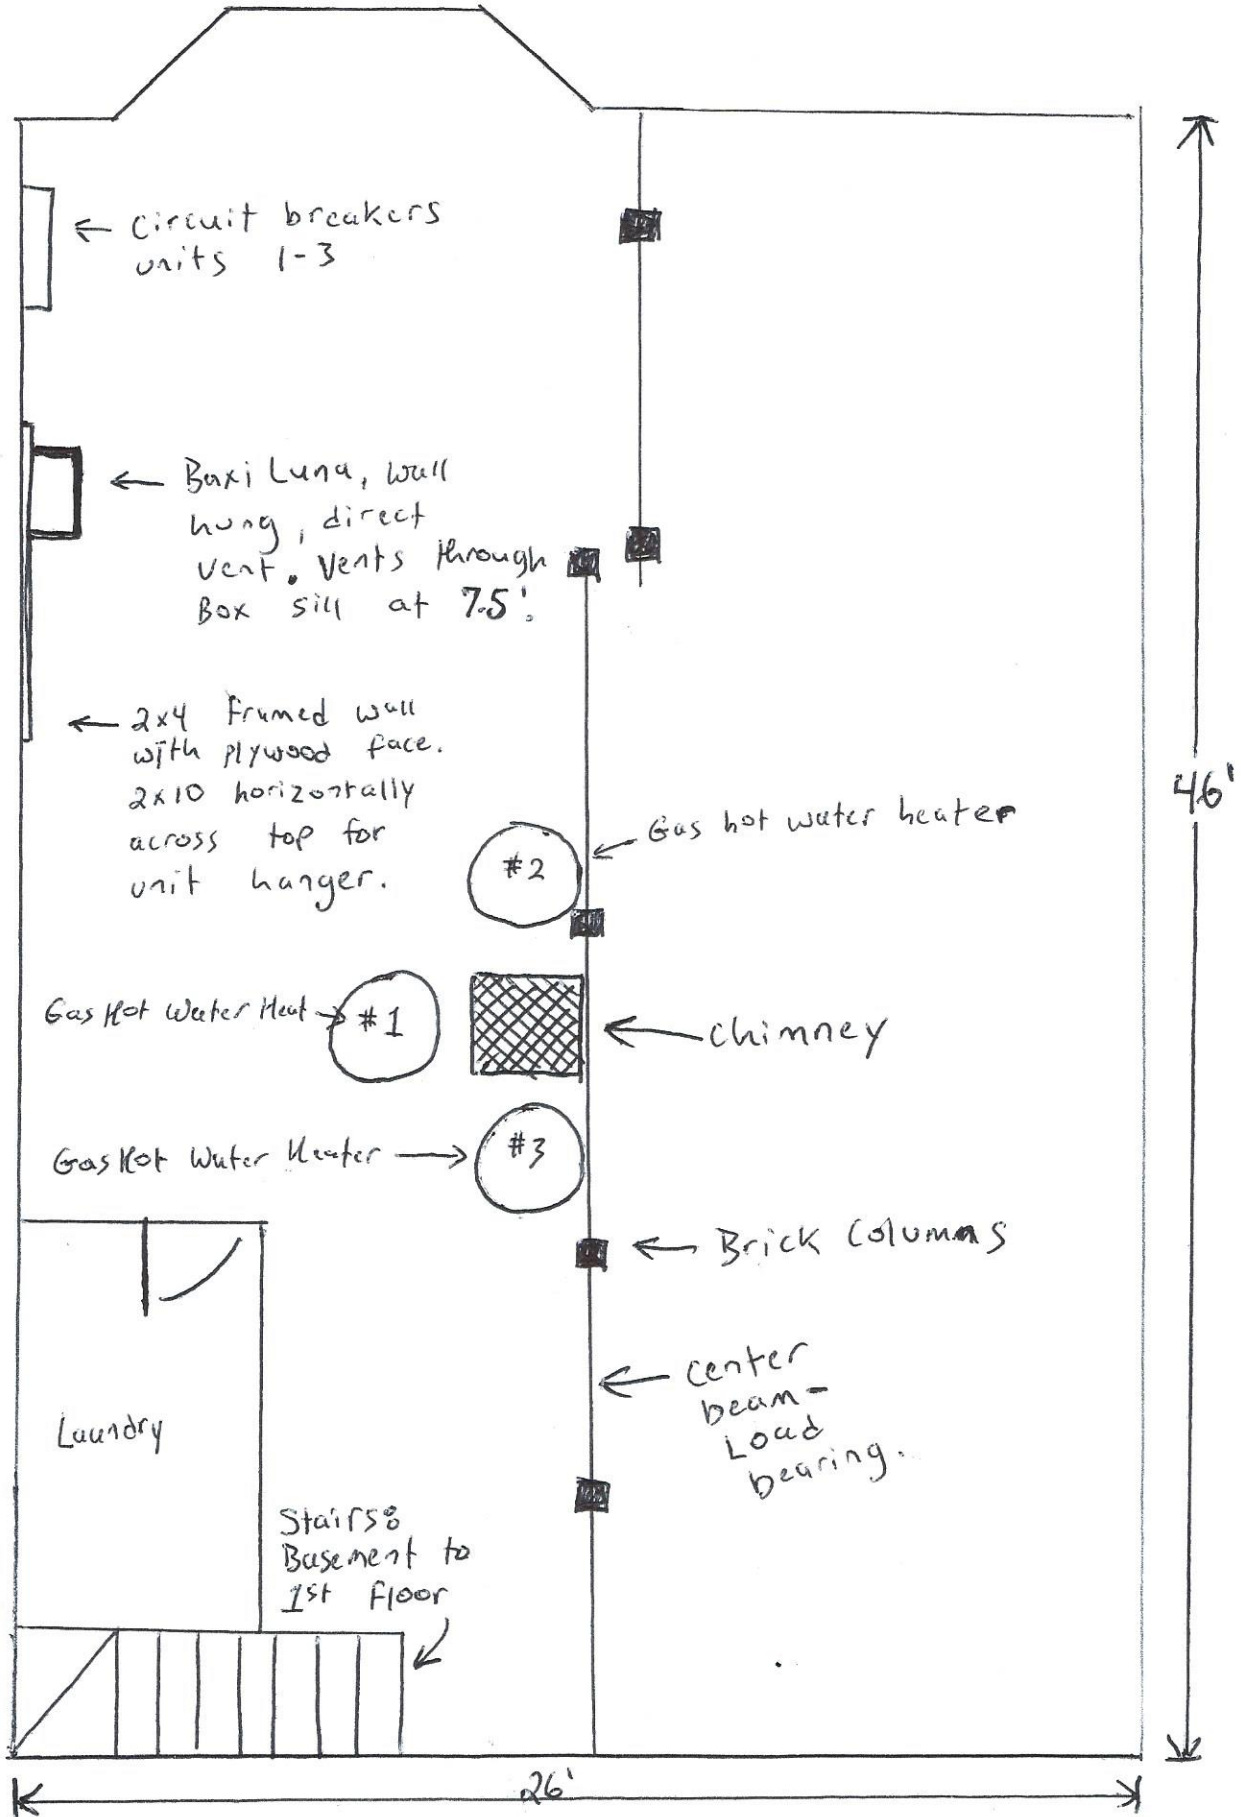 Circuit breakers
units 1-3
Baxi Luna, wall
hung, direct
vent. Vents through
Box sill at 7.5'.
2x4 framed wall
with plywood face.
2x10 horizontally
across top for
unit hanger.
46'
Gas hot water heater
#2
Gas Hot Water Heat
#1
Chimney
Gas Hot Water Heater
#3
Brick Columns
Center
beam-
Load
bearing.
Laundry
Stairs:
Basement to
1st floor
26'